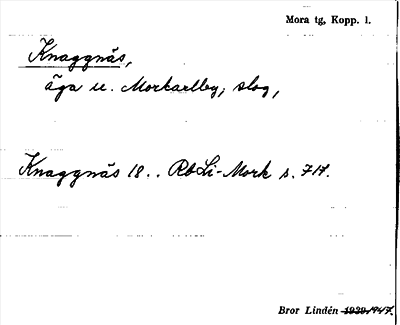 Mora tg, Kopp. l.
Knaggnäs,
äga u. Morkarlby; slog,
Knaggnäs 18.. RbLi-Mork s. 717.
Bror Lindén 1939-1947.